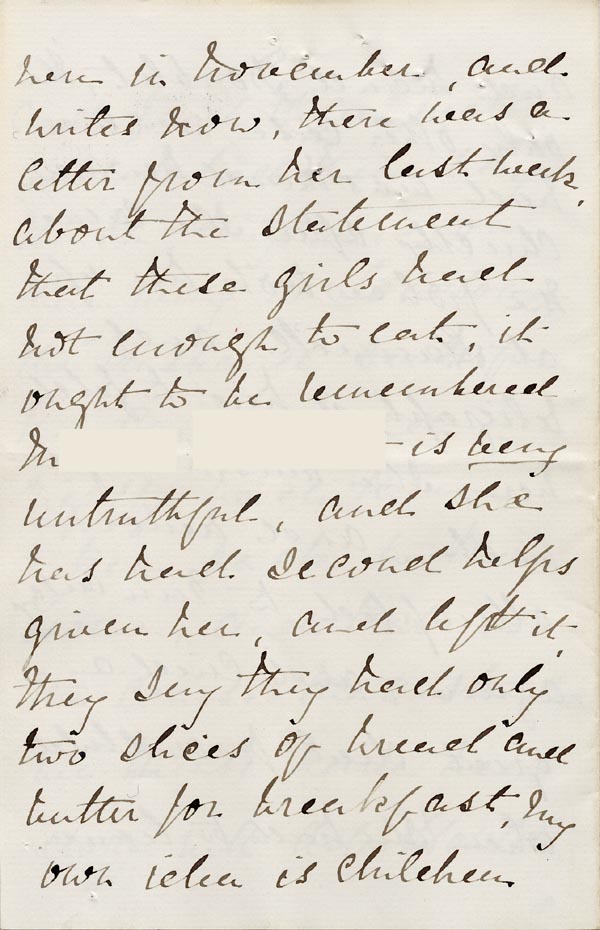 here in November, and
writes now, there was a
letter from her last week,
about the statement
that these girls had
not enough to eat, it
ought to be remembered
M
– is very
untruthful, and she
has had second helps
given her, and left it,
they say they had only
two slices of bread and
butter for breakfast, my
own idea is children